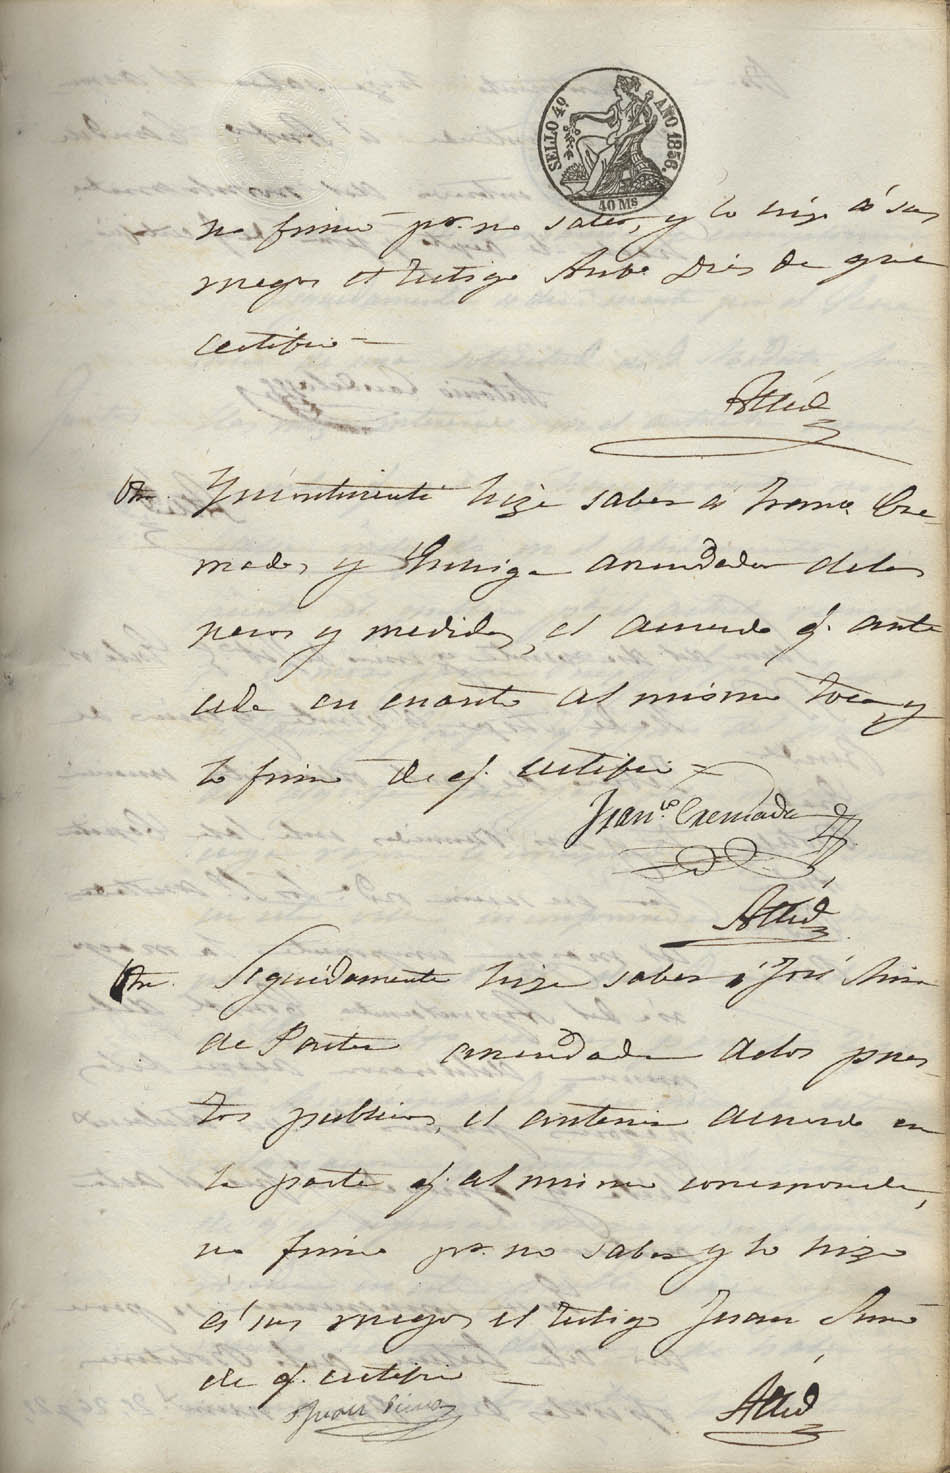 SELLO 4º AÑO 1856.
40 Ms
no firmó pr. no saber, y lo hizo á sus
ruegos el testigo de que
certifico =
Otra. Yncontinenti hize saber á Franco. Cre-
mades y arrendador delos
pesos y medidas, el acuerdo q. ante
cede en cuanto al mismo toca, y
lo firmó de q. certifico =
Franco. Cremades
Otra. Seguidamente hize saber á José
de arrendador delos pues-
tos publicos, el anterior acuerdo en
la parte q. al mismo corresponde,
no firmó pr. no saber y lo hizo
á sus ruegos el testigo Juan
de q. certifico =
Juan